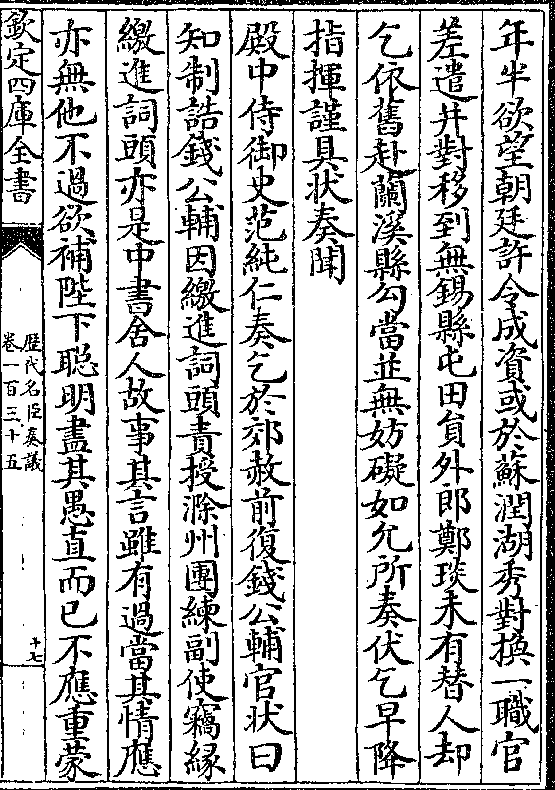 年半欲望朝廷許令成資或於蘇潤湖秀對換一職官
差遣并對移到無錫縣屯田貟外郎鄭琰未有替人却
乞依舊赴蘭溪縣勾當並無妨礙如允所奏伏乞早降
指揮謹具狀奏聞
殿中侍御史范純仁奏乞於郊赦前復錢公輔官狀曰
知制誥錢公輔因繳進詞頭責授滁州團練副使竊緣
繳進詞頭亦是中書舍人故事其言雖有過當其情應
亦無他不過欲補陛下聰明盡其愚直而已不應重蒙
欽定四庫全書
歷代名臣奏議
卷一百三十五
十七